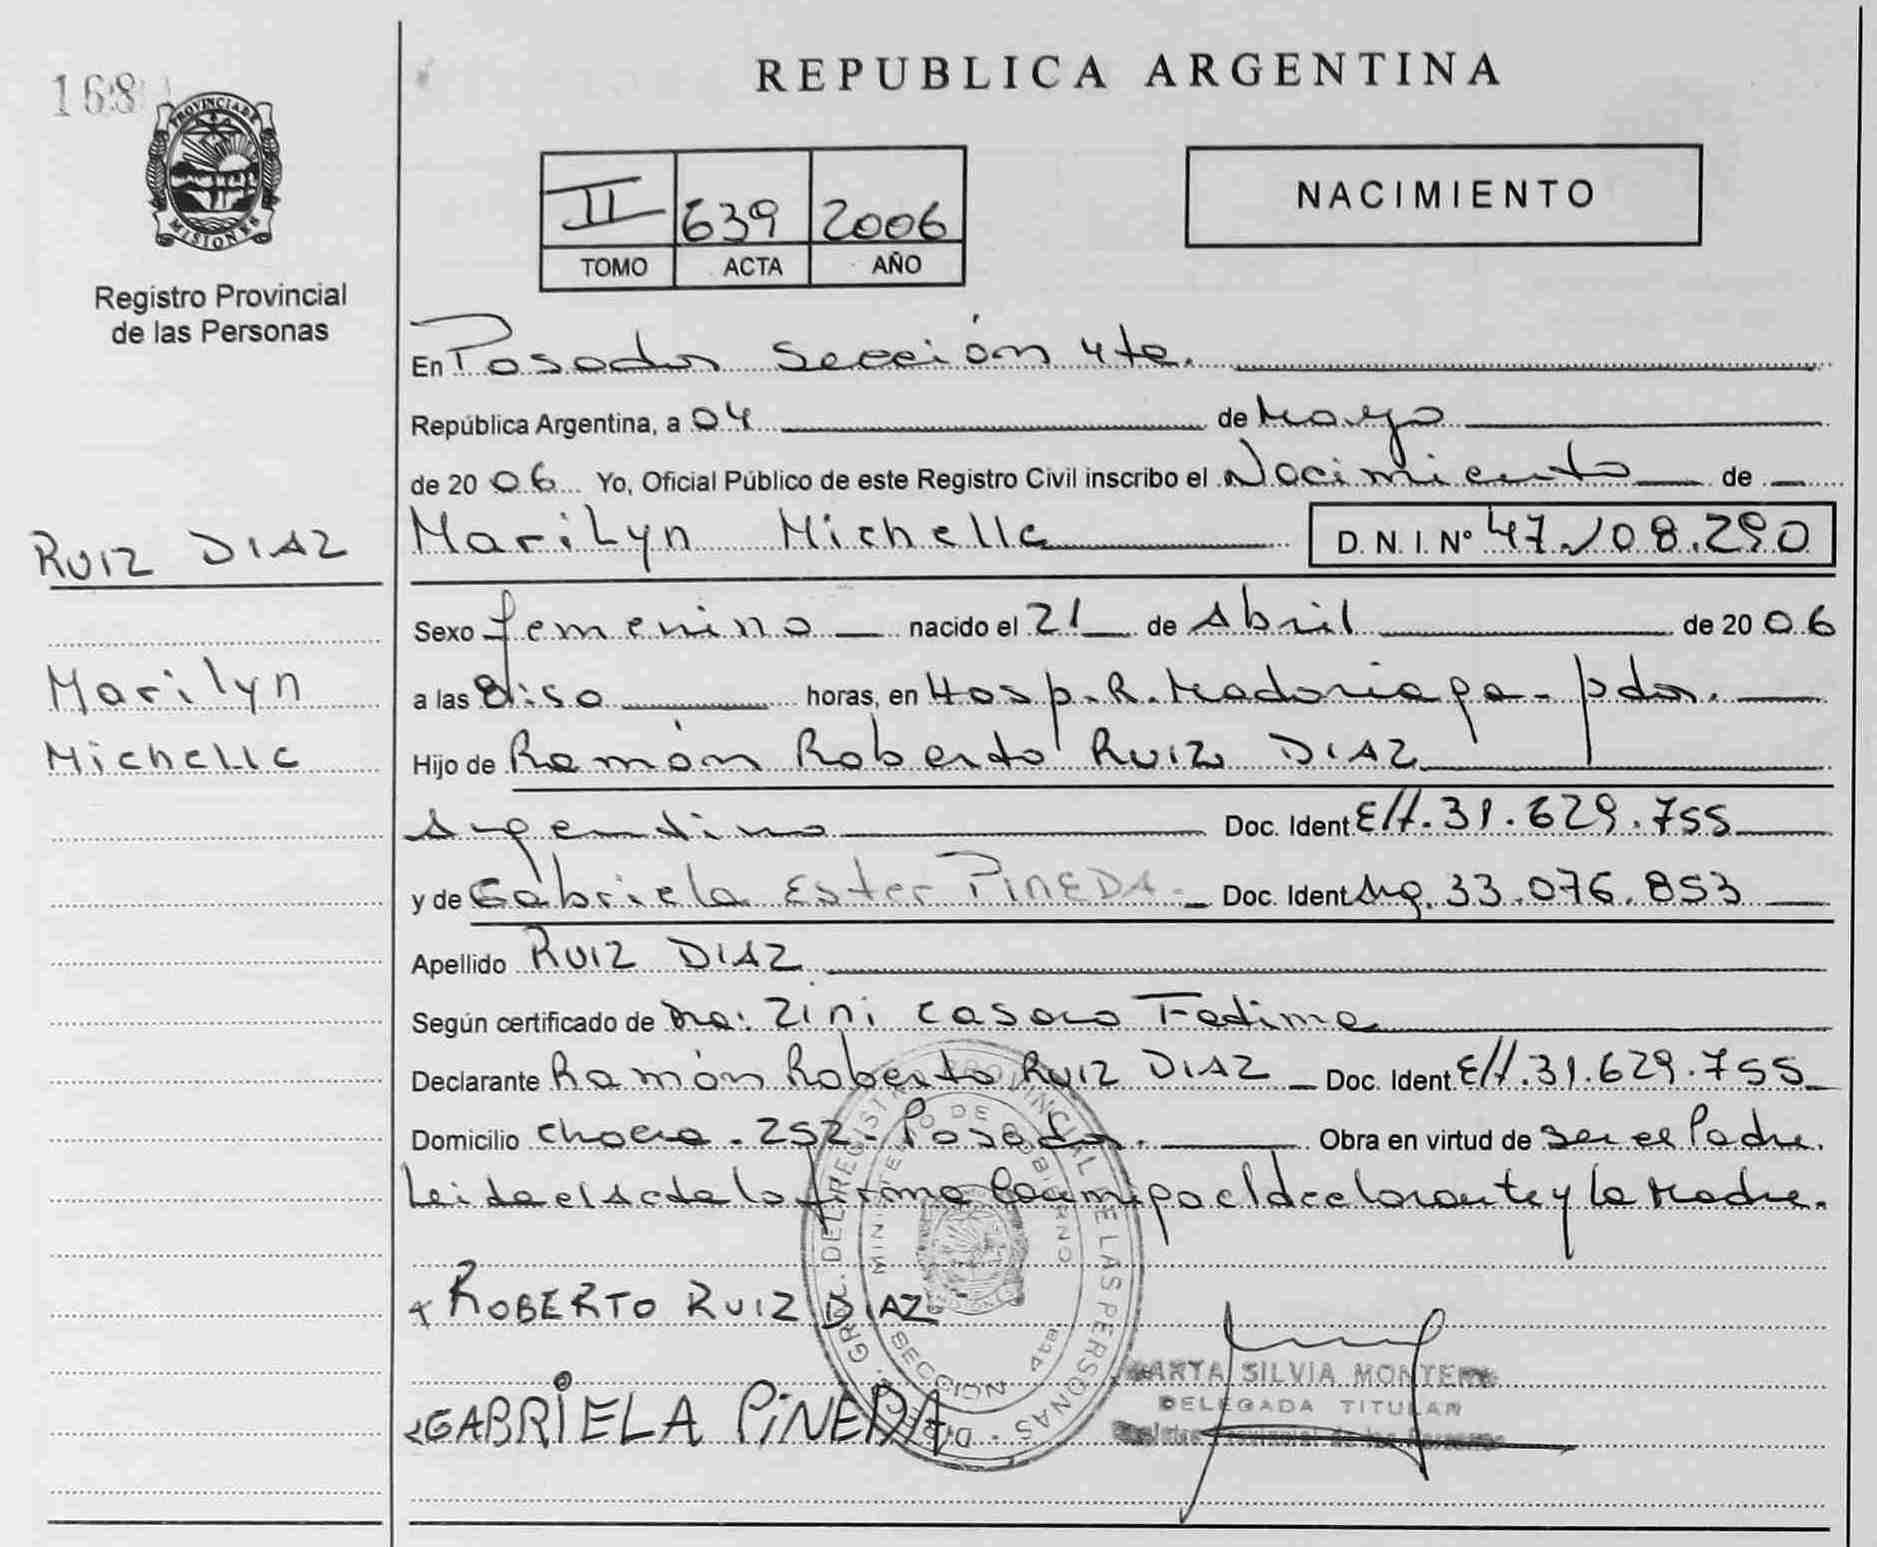 168
PROVINCIA DE
MISIONES
Registro Provincial
de las Personas
RUIZ DIAZ
Marilyn
Michelle
REPUBLICA ARGENTINA
II 639 2006
TOMO ACTA AÑO
NACIMIENTO
En Posadas Sección 4ta.
República Argentina, a 04 de Mayo
de 2006 Yo, Oficial Público de este Registro Civil inscribo el Nacimiento de
Marilyn Michelle D.N.I. Nº 47.108.290
Sexo femenino nacido el 21 de Abril de 2006
a las 8:50 horas, en Hosp. R. Madariaga - Pdas.
Hijo de Ramón Roberto RUIZ DIAZ
Argentino Doc. Ident 31.629.755
y de Gabriela Ester PINEDA Doc. Ident Arg. 33.076.853
Apellido RUIZ DIAZ
Según certificado de Dra: Zini Casaco Fatima
Declarante Ramón Roberto RUIZ DIAZ Doc. Ident 31.629.755
Domicilio 252 - Posadas. Obra en virtud de ser el Padre.
Leida el Acta la firma conmigo el declarante y la Madre.
ROBERTO RUIZ DIAZ
GABRIELA PINEDA
DIREC. GRAL. DEL REGISTRO PROVINCIAL DE LAS PERSONAS
MINISTERIO DE GOBIERNO
SECCION 4ta
MARTA SILVIA
DELEGADA TITULAR
Registro Provincial de las Personas